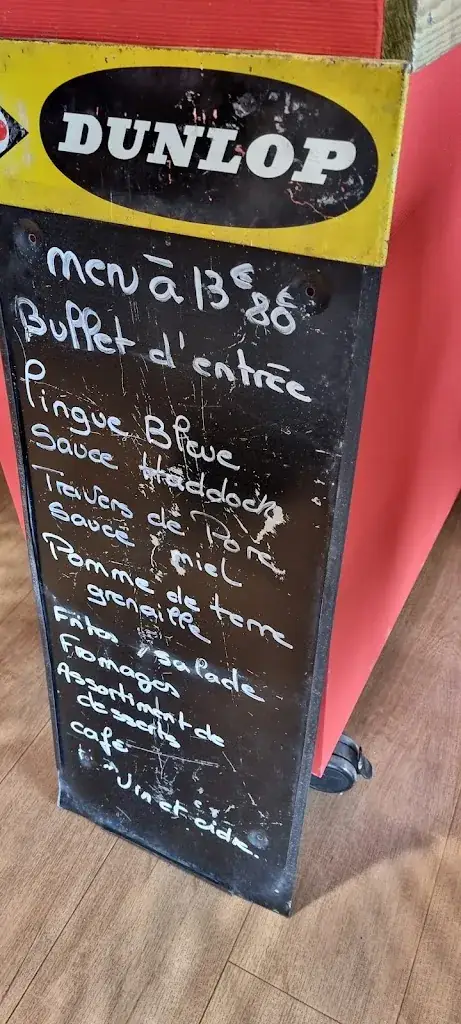 DUNLOP
menu à 13€80€
Buffet d'entrée
Pingue Bleue
Sauce Haddock
Travers de Porc
Sauce miel
Pomme de terre
grenaille
Frites / salade
Fromages
Assortiment de
desserts
café
vin et cidre.